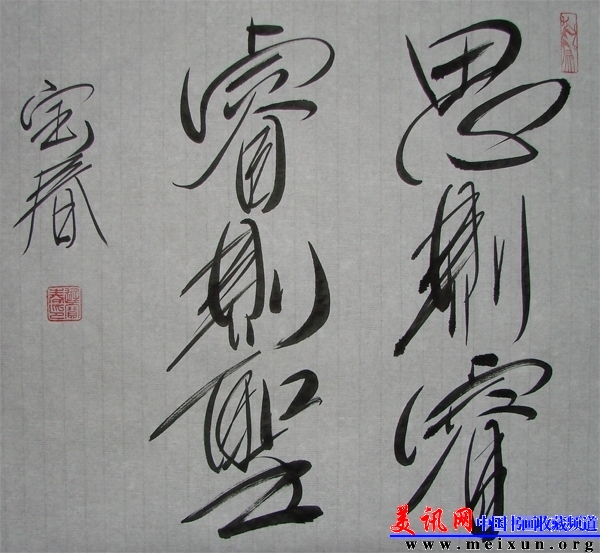 思则睿
睿则聖
宝春
美讯网 中国书画收藏频道
www.meixun.org